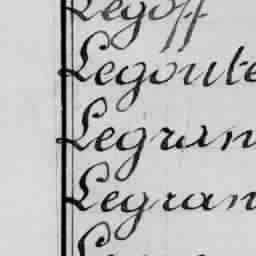 Legoff
Legoute
Legran
Legran